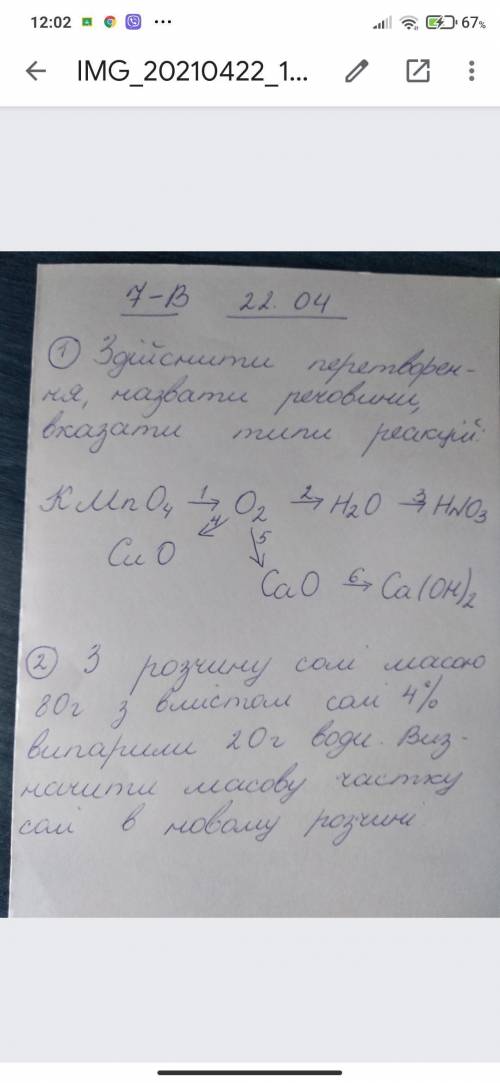 12:02
67%
IMG_20210422_1...
7-В 22.04
① Здійснити перетворен-
ня, назвати речовини,
вказати типи реакцій:
KMnO₄ →1 O₂ →2 H₂O →3 HNO₃
4 5
CuO
CaO →6 Ca(OH)₂
② З розчину солі масою
80г з вмістом солі 4%
випарили 20г води. Виз-
начити масову частку
солі в новому розчині